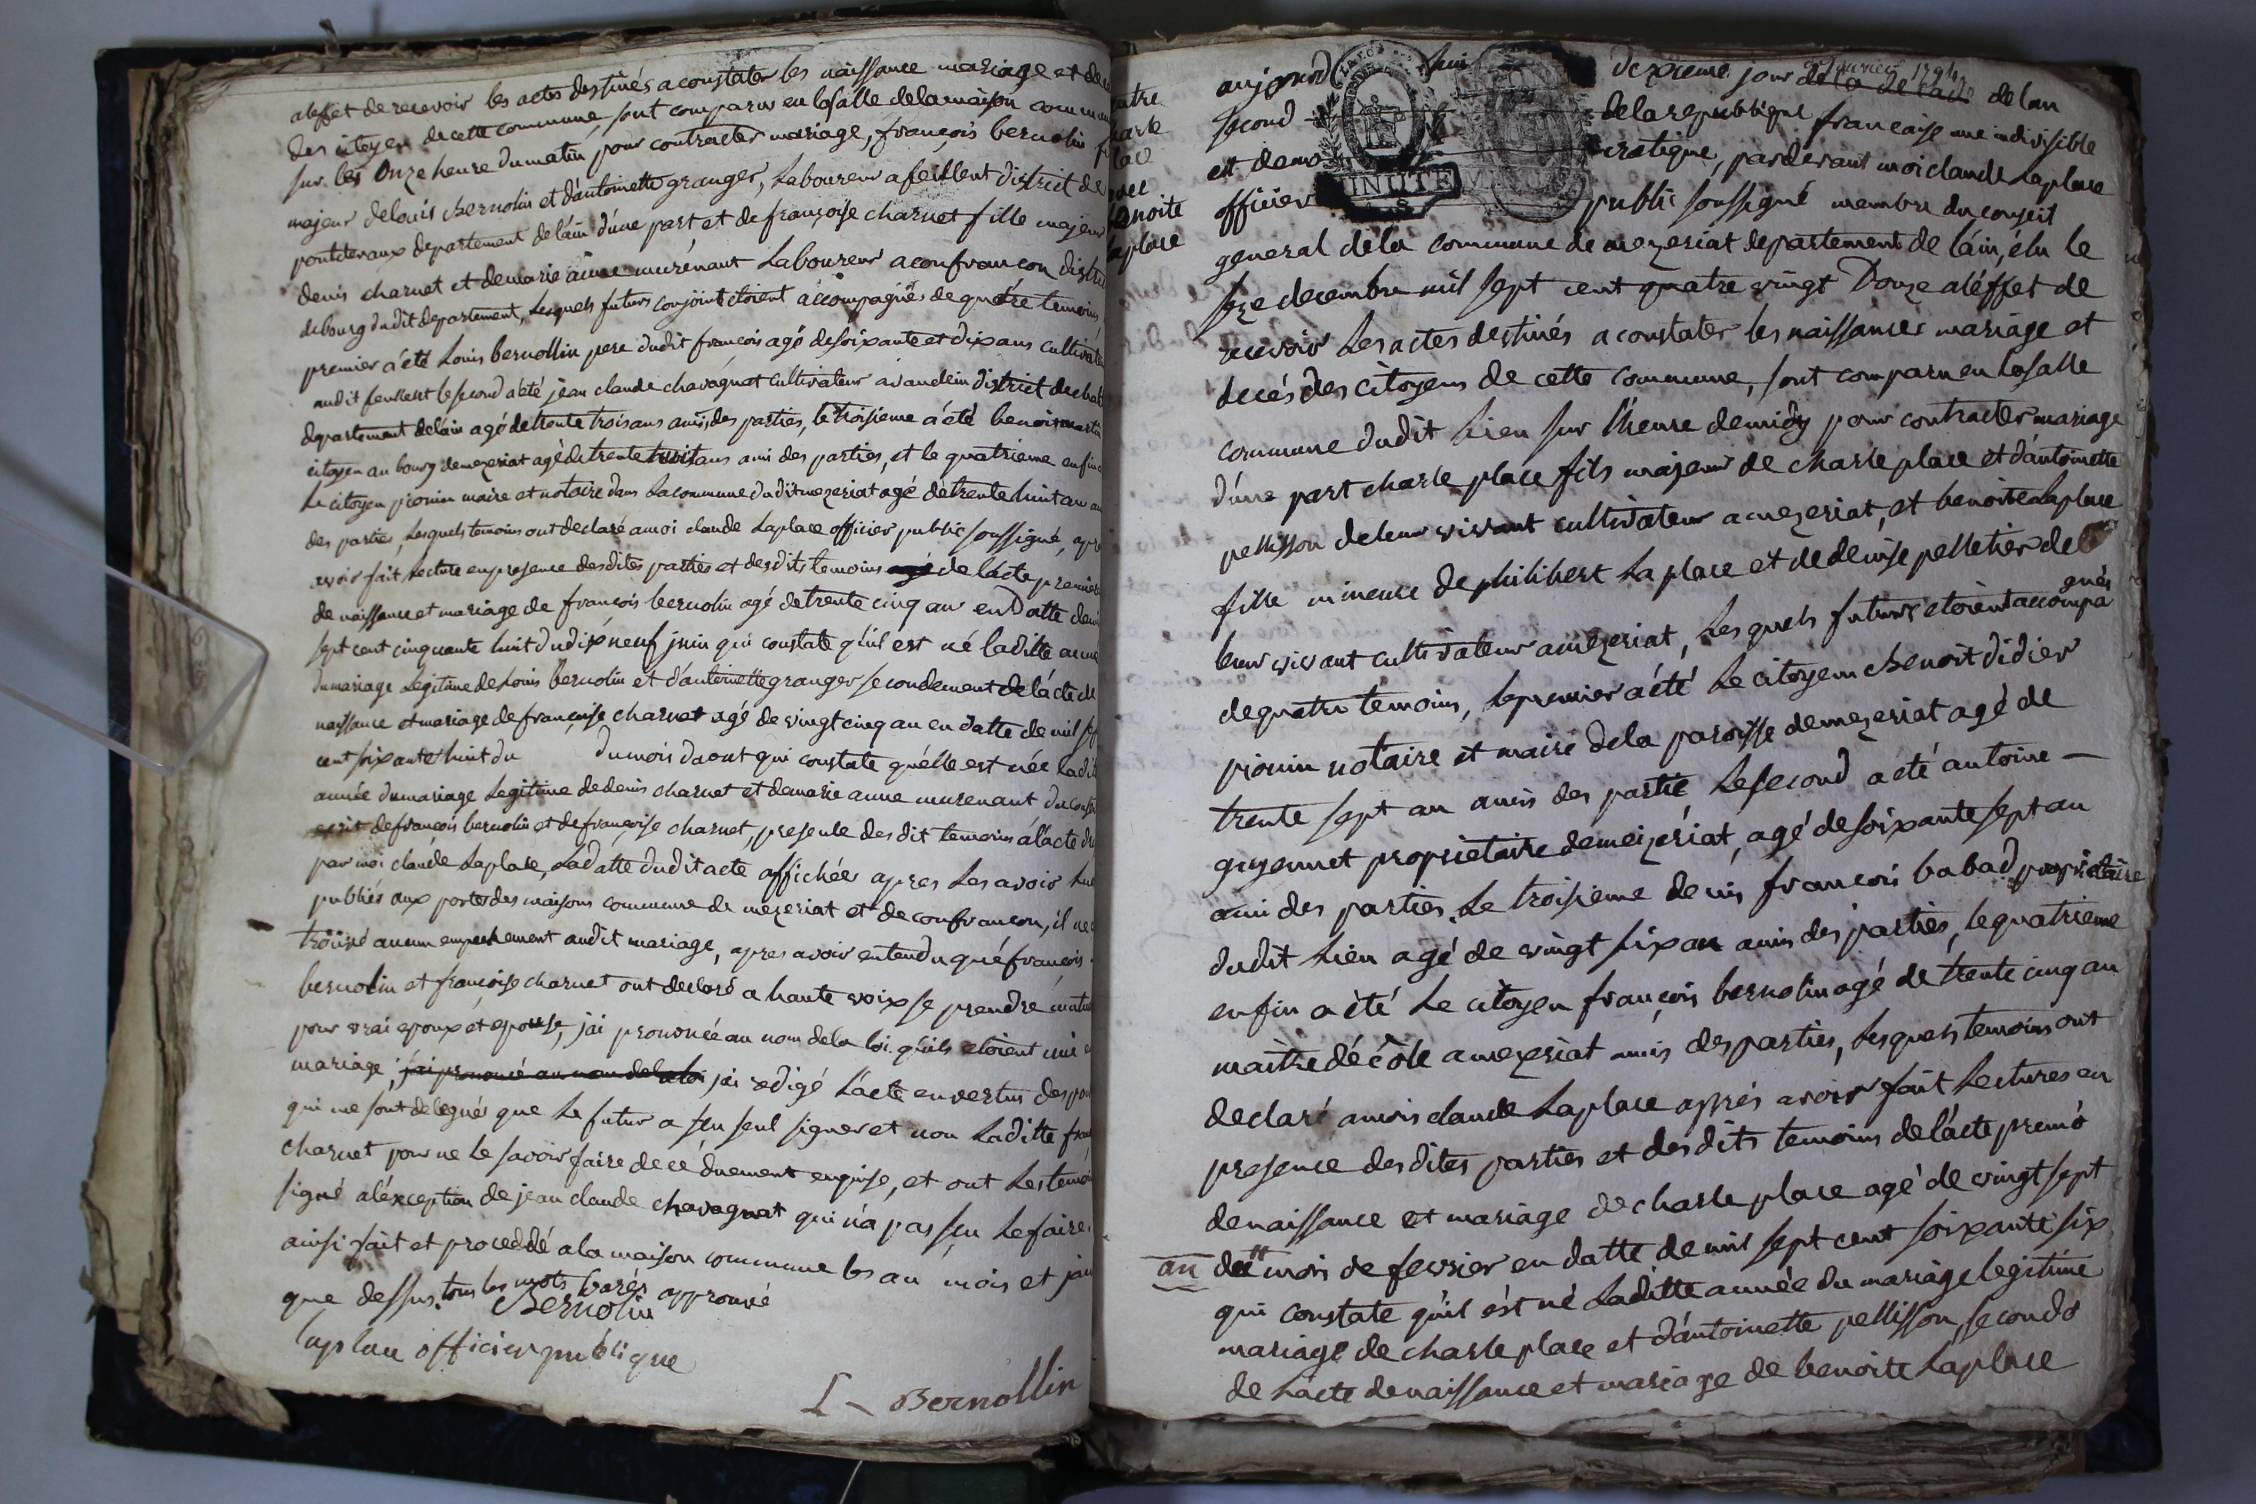 aleffet de recevoir les actes destinés a constater les naissance mariage et de
des citoyen de cette commune, sont comparus en lasalle delamaison commun
sur les Onze heure dumatin pour contracter mariage, françois bernolin f
majeur delouis Bernolin et d'antoinette granger, Laboureur a feillent district de
pontdevaux departement de láin d'une part et de françoise charnet fille majeur
denis charnet et demarie anne murénant Laboureur a confrancon distri
debourg dudit departement, Lesquels futurs conjoint étoient accompagnés de quatre temoins
premier a été Louis bernollin pere dudit françois agé desoixante et dix ans cultivate
audit feillent le second a été jean claude chavagnat cultivateur a vandein district de chati
departement deláin agé de trente trois ans ami des parties, le troisieme a été benoist martin
citoyen au bourg demezeriat agé de trente huit ans ami des parties, et le quatrieme enfin a
Le citoyen pionin maire et notaire dans Lacommune dudit mezeriat agé de trente huit an am
des parties, Lesquels temoins ont declaré amoi claude Laplace officier public soussigné, apr
avoir fait Lecture en presence desdites parties et desdits temoins agé de lácte premier
de naissance et mariage de françois bernolin agé de trente cinq an en Datte demi
sept cent cinquante huit du dix neuf juin qui constate qu'il est né laditte anné
dumariage Legitime de Louis bernolin et d'antoinette granger secondement de lácte de
naissance et mariage de françoise charnet agé de vingt cinq an en datte de mil sep
cent soixante huit du dumois d'aout qui constate qu'elle est née ladit
année dumariage Legitime dedenis charnet et demarie anne murenant du conse
defrançois bernolin et de françoise charnet, presente des dit temoins a lácte du
par moi claude Laplace, Ladatte dudit acte affichée apres Les avoir lue
publiés aux portes des maisons commune de mezeriat et de confrancon, il ne
trouvé aucun empechement audit mariage, apres avoir entendu qué françois
bernolin et françoise charnet ont declaré a haute voix se prendre mutue
pour vrai epoux et epouse, j'ai prononcée au nom dela loi qu'ils etoient uni e
mariage, j'ai prononcé au nom de la loi j'ai redigé lácte en vertus des pou
qui me sont delegués que Le futur a seu seul signer et non Laditte fran
charnet pour ne le savoir faire de ce duement enquise, et ont Les temoi
signé a léxception de jean claude chavagnat qui n'a pas seu Lefaire
ainsi fait et proceddé a la maison commune les an mois et jour
que dessus. tous les mots barés approuvé
Bernolin
laplace officier publique
L - Bernollin
harle
place
benoite
laplace
aujourd hui deuxieme jour delan
second delarepublique francaise une indivisible
et demo cratique, pardevant moi claude Laplace
officier public soussigné membre du conseil
MINUTE
general dela commune de mezeriat departement de láin, élu le
seze decembre mil sept cent quatre vingt Douze aléffet de
recevoir Les actes destinés a constater les naissances mariage et
decés des citoyens de cette commune, sont comparu en Lasalle
commune dudit Lieu sur l'heure demidy pour contracter mariage
d'une part charle place fils majeur de charle place et d'antoinette
pellisson deleur vivant cultivateur a mezeriat, et benoite Laplace
fille mineure de philibert Laplace et dedenise pelletier de
leur vivant cultivateur a mezeriat, Lesquels futurs etoient accompa
gnés
dequatre temoins, Lepremier a été Le citoyen Benoit didier
pionin notaire et maire dela paroisse demezeriat agé de
trente sept an amis des partie Lesecond a eté antoine —
guyennet proprietaire demeizériat, agé desoixante sept an
ami des parties, Le troisieme denis françois babad proprietaire
dudit Lieu agé de vingt six an amis des parties, le quatrieme
enfin a été Le citoyen françois bernolin agé de trente cinq an
maitre d'école a mezeriat amis des parties, Lesquels temoins ont
declaré a mois claude Laplace après avoir fait Lectures en
presence des dites parties et des dits temoins de lácte premé
denaissance et mariage de charle place agé de vingt sept
an du mois de fevrier en datte de mil sept cent soixante six
qui constate qu'il est né Laditte année du mariage legitime
mariage de charle place et d'antoinette pellisson, secondé
de Lacte denaissance et mariage de benoite Laplace